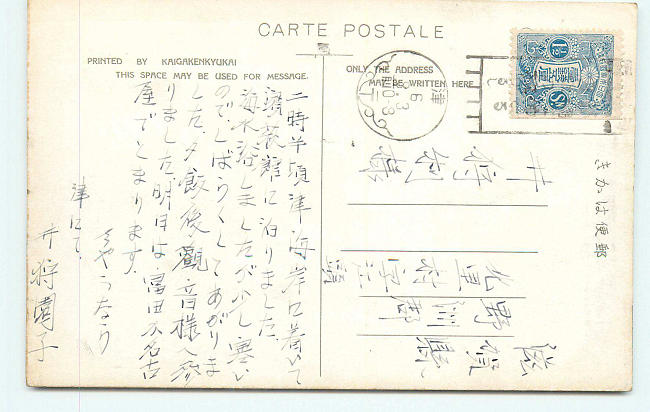 CARTE POSTALE
PRINTED BY KAIGAKENKYUKAI
THIS SPACE MAY BE USED FOR MESSAGE.
ONLY THE ADDRESS
MAY BE WRITTEN HERE
きかは便郵
滋賀縣
野洲郡
北里村字江頭
井狩
二時半頃津海岸に着いて
濱に泊りました。
海水浴しましたが少し寒い
ので、しばらくしてあがりま
した。夕飯後、觀音様へ参
りました。明日は富田か名古
屋でとまります。
さやうなら
津にて、
井狩
津
6